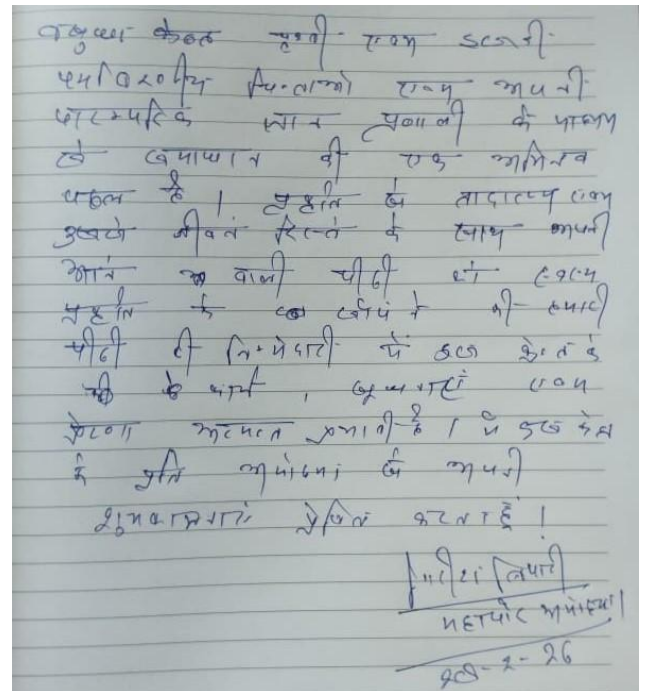 वसुधा केन्द्र पृथ्वी एवम उसकी
पर्यावरणीय चिन्ताओ एवम् अपनी
पारम्परिक ज्ञान प्रणाली के माध्यम
से समाधान की एक अभिनव
पहल है । प्रकृति से तादात्म्य एवम
उसके जीवंत रिश्ते के साथ अपनी
आने वाली पीढी को स्वस्थ
प्रकृति के सौंपने की हमारी
पीढी की जिम्मेदारी में इस केन्द्र के
के कार्य, एवम
प्रेरणा अत्यन्त प्रभावी है । मैं इस केन्द्र
के प्रति अयोध्या से अपनी
शुभकामनाएं प्रेषित करता हूँ ।
गिरीश त्रिपाठी
महापौर अयोध्या